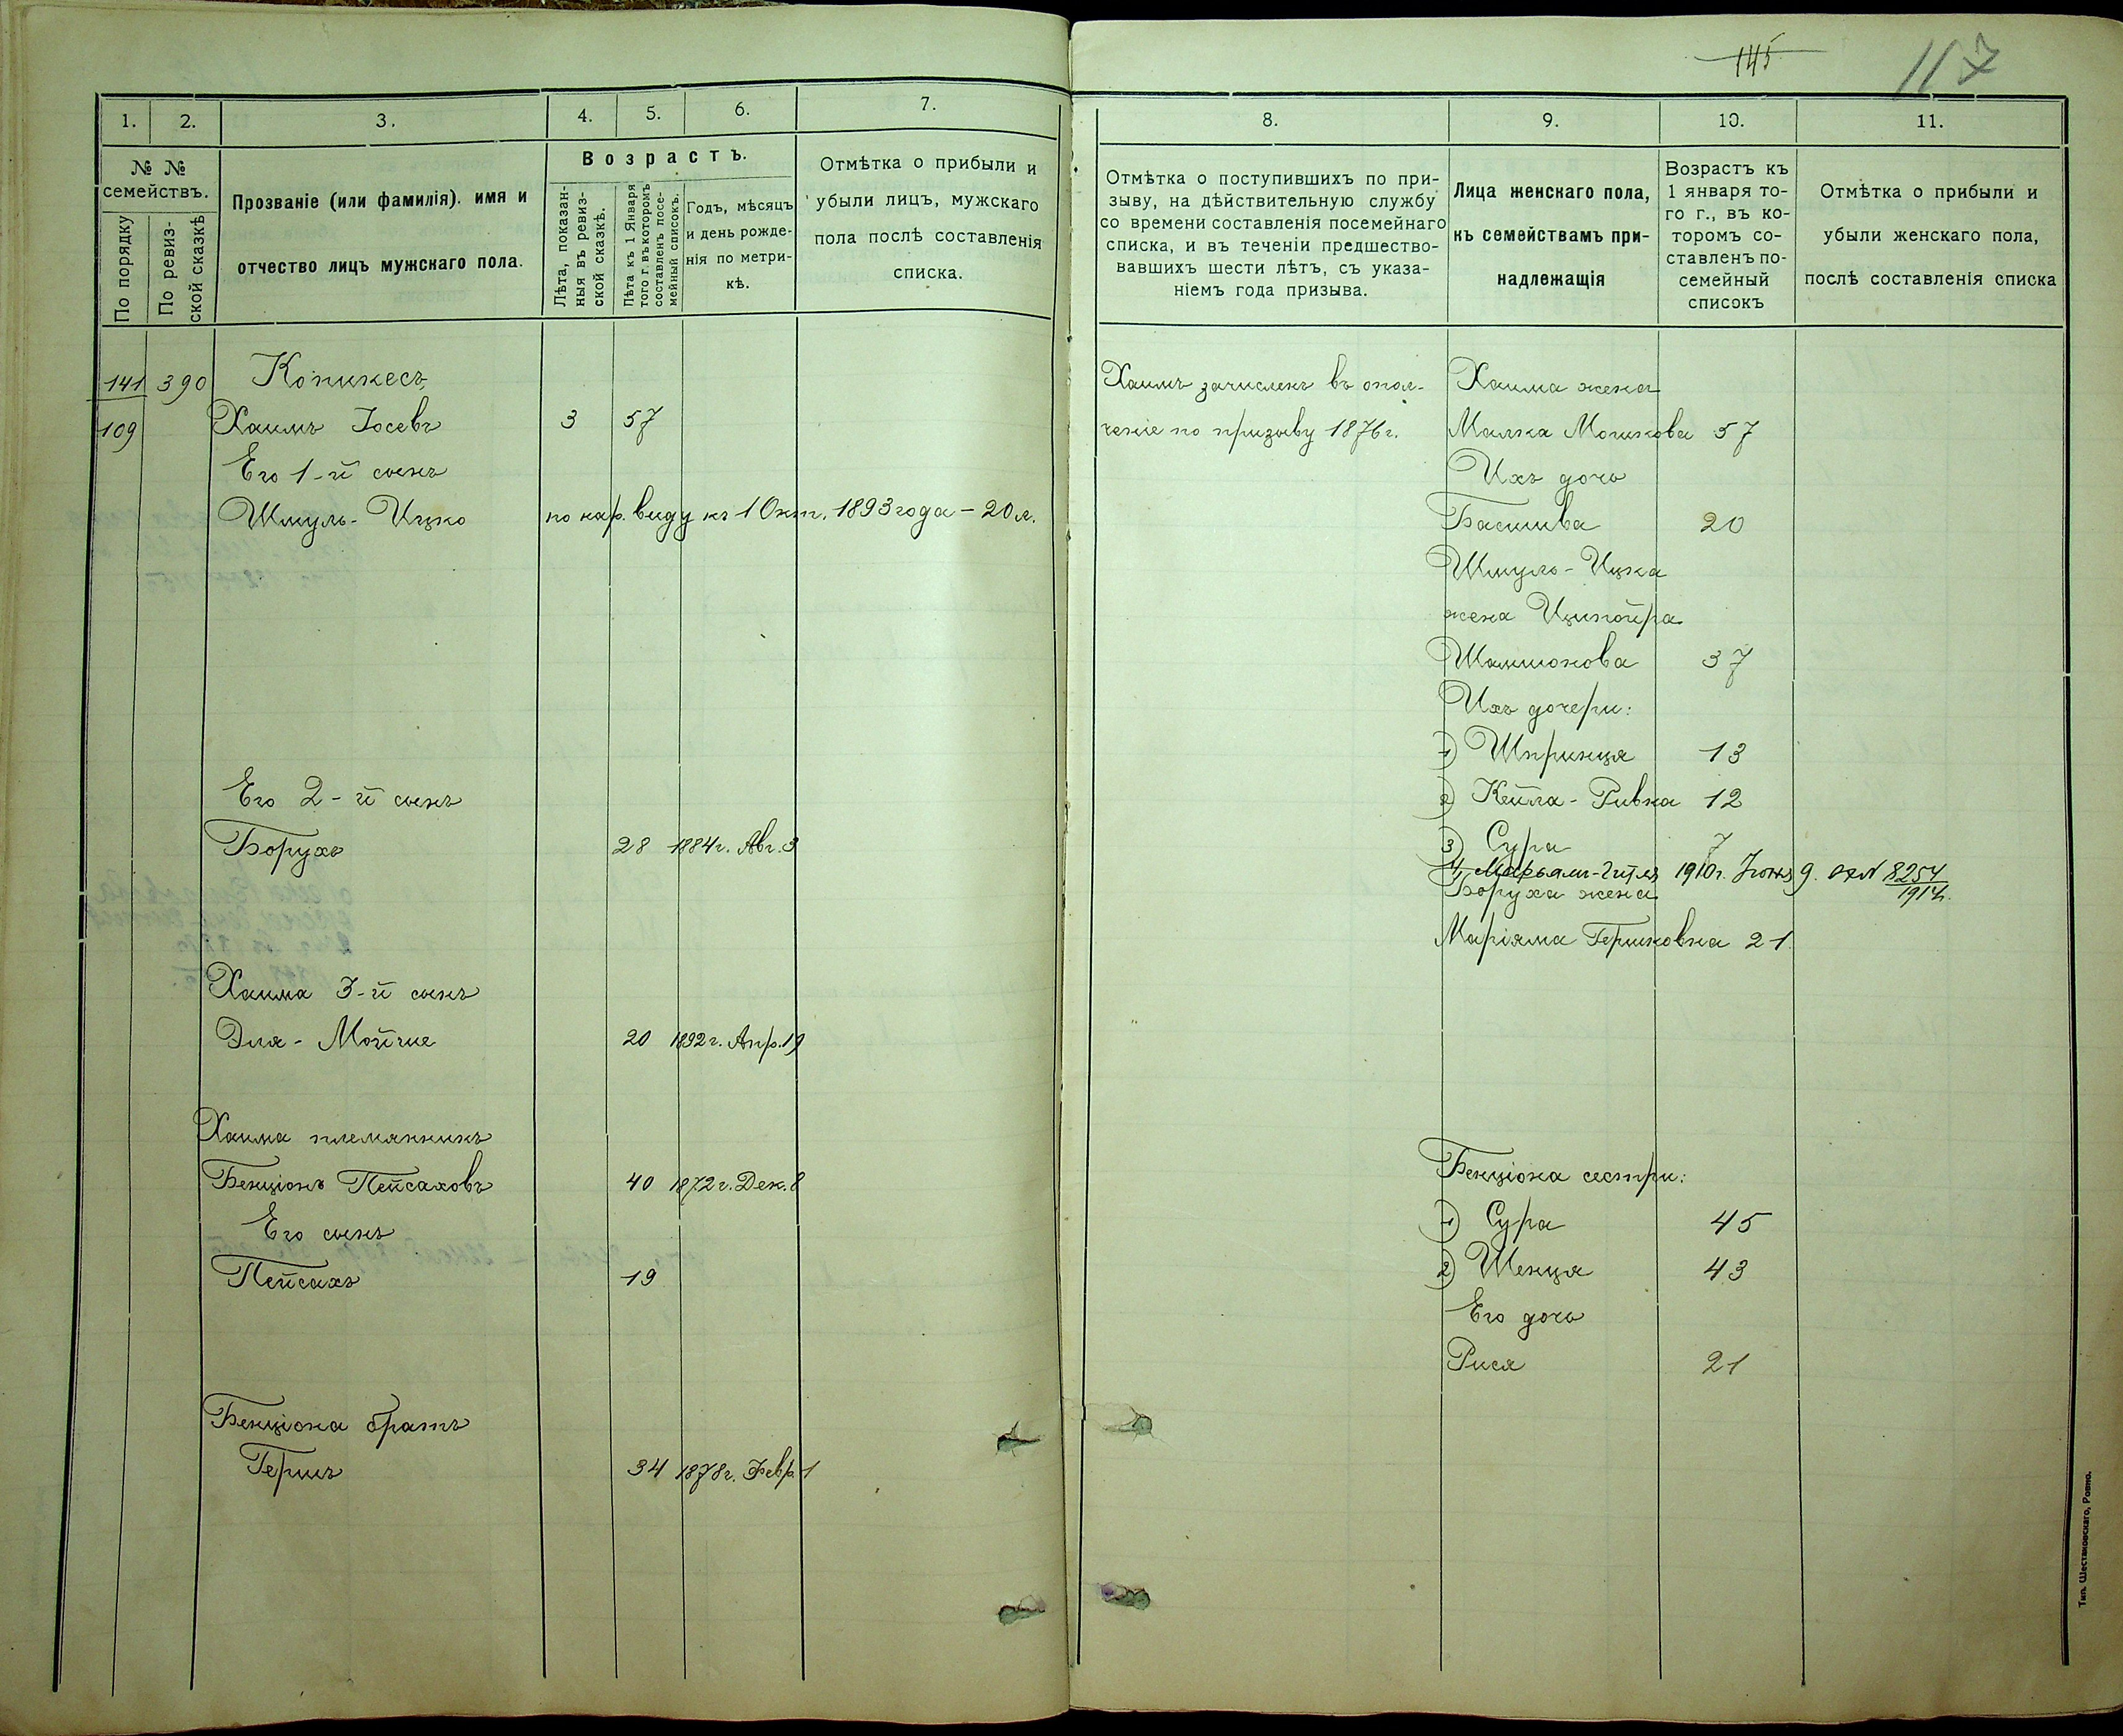 145
117
1.
2.
3.
4.
5.
6.
7.
№ №
семействъ.
По порядку
По ревиз-
ской сказкѣ
Прозваніе (или фамилія). имя и
отчество лицъ мужскаго пола.
Возрастъ.
Лѣта, показан-
ныя въ ревиз-
ской сказкѣ.
Лѣта къ 1 Января
того г. въ которомъ
составленъ посе-
мейный списокъ.
Годъ, мѣсяцъ
и день рожде-
нія по метри-
кѣ.
Отмѣтка о прибыли и
убыли лицъ, мужскаго
пола послѣ составленія
списка.
141 390 Копикесъ
109 Хаимъ Іосевъ 3 57
Его 1-й сынъ
Шмуль-Ицко по нар. виду къ 1 Окт. 1893 года - 20 л.
Его 2-й сынъ
Борухъ 28 1884 г. Авг. 3
Хаима 3-й сынъ
Эля-Мойше 20 1892 г. Апр. 19
Хаима племянникъ
Бенціонъ Пейсаховъ 40 1872 г. Дек. 8
Его сынъ
Пейсахъ 19
Бенціона братъ
Гершъ 34 1878 г. Февр. 1
8.
9.
10.
11.
Отмѣтка о поступившихъ по при-
зыву, на дѣйствительную службу
со времени составленія посемейнаго
списка, и въ теченіи предшество-
вавшихъ шести лѣтъ, съ указа-
ніемъ года призыва.
Лица женскаго пола,
къ семействамъ при-
надлежащія
Возрастъ къ
1 января то-
го г., въ ко-
торомъ со-
ставленъ по-
семейный
списокъ
Отмѣтка о прибыли и
убыли женскаго пола,
послѣ составленія списка
Хаимъ зачисленъ въ опол- Хаима жена
ченіе по призыву 1876 г. Малка Мошкова 57
Ихъ дочь
Басшива 20
Шмуль-Ицка
жена Ципойра
Шамшонова 37
Ихъ дочери:
1) Шпринця 13
2) Кейла-Ривка 12
3) Сура 7
4) Марьям-Гитля 1910 г. Іюня 9. 8254
1914 г.
Боруха жена
Маріяма Гершковна 21
Бенціона сестри:
1) Сура 45
2) Шенця 43
Его дочь
Рися 21
Тип. Шестаковскаго, Ровно.